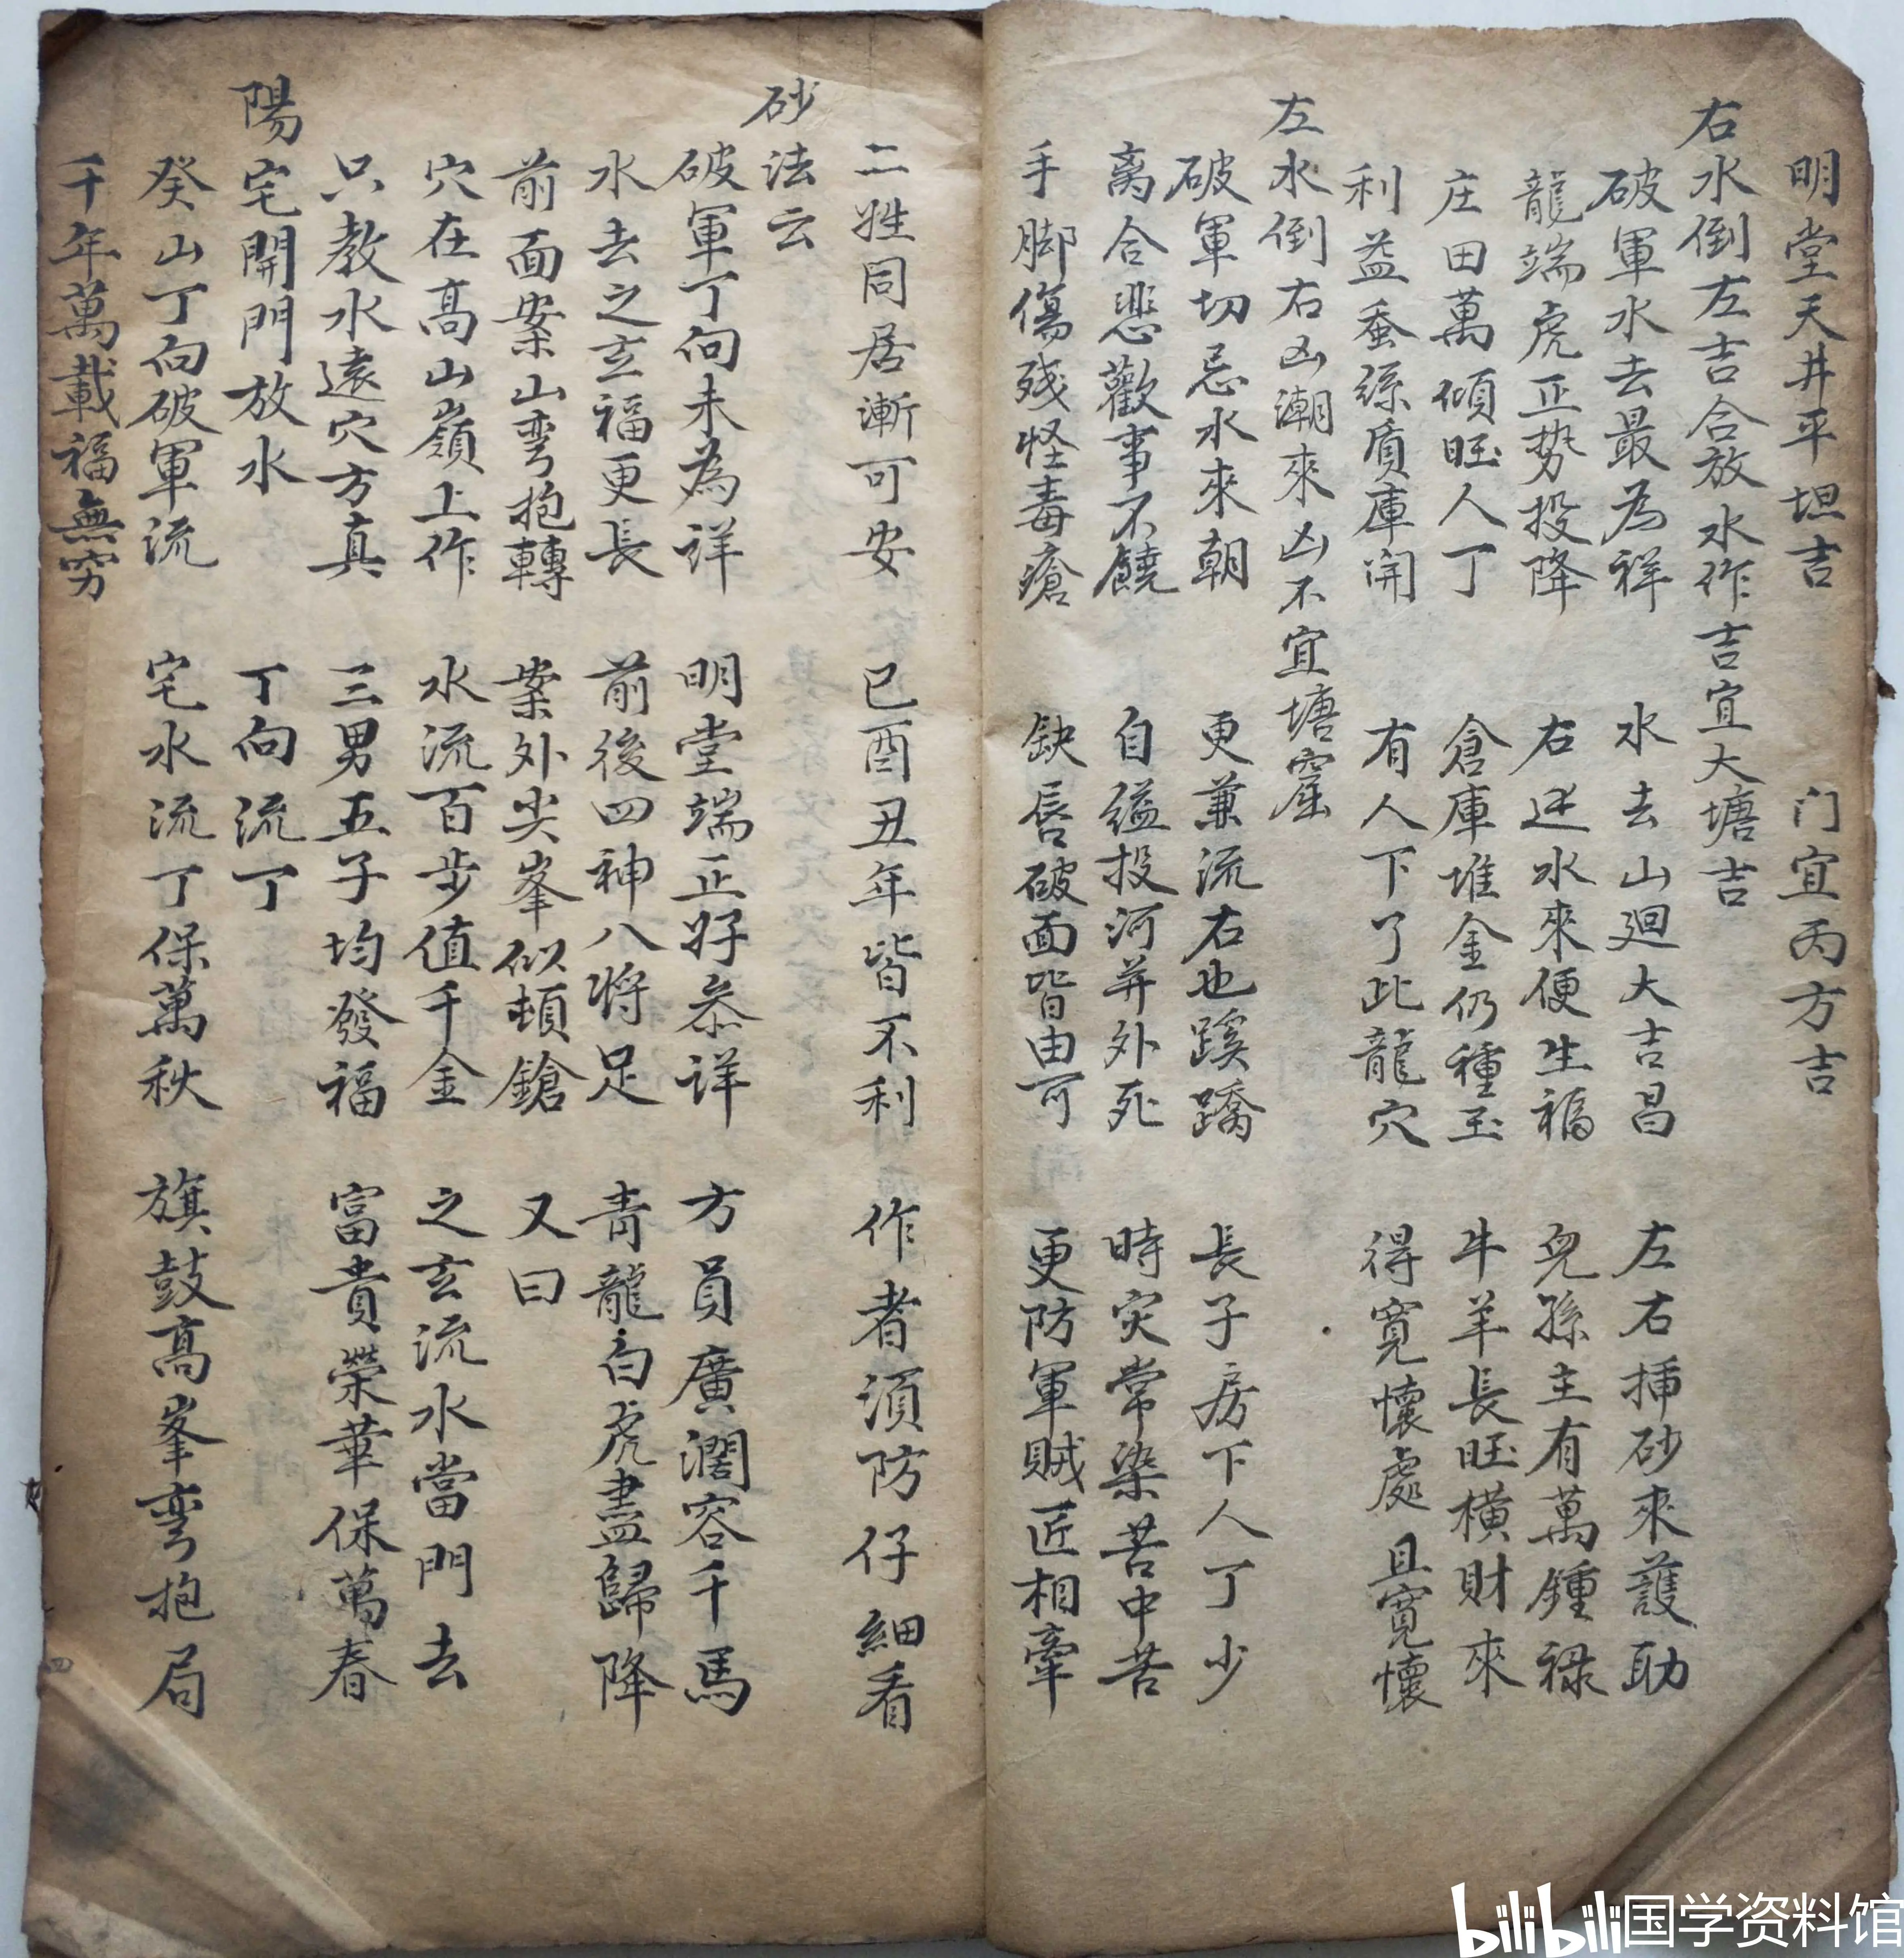 明堂天井平坦吉 门宜丙方吉
右水倒左吉合放水作吉宜大塘吉
破軍水去最為祥 水去山廻大吉昌 左右挿砂來護助
龍端虎正势投降 右逆水來便生福 兒孫主有萬鍾祿
庄田萬傾旺人丁 倉庫堆金仍種玉 牛羊長旺横財來
利益蚕絲質庫開 有人下了此龍穴 得寛懷處且寛懷
左水倒右凶潮來凶不宜塘窟
破軍切忌水來朝 更兼流右也蹊蹺 長子房下人丁少
离合悲歡事不饒 自縊投河并外死 時灾常染苦中苦
手脚傷殘怪毒瘡 缺唇破面皆由可 更防軍賊匠相牽
二姓同居漸可安 巳酉丑年皆不利 作者須防仔細看
砂法云
破軍丁向未為详 明堂端正好叅详 方員廣濶容千馬
水去之玄福更長 前後四神八將足 青龍白虎盡歸降
前面案山弯抱轉 案外尖峯似頓鎗 又曰
穴在高山嶺上作 水流百步值千金 之玄流水當門去
只教水遠穴方真 三男五子均發福 富貴榮華保萬春
陽宅開門放水 丁向流丁
癸山丁向破軍流 宅水流丁保萬秋 旗鼓高峯弯抱局
千年萬載福無穷
bilibili国学资料馆